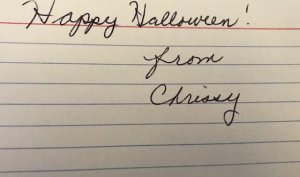 Happy Halloween!
from
Chrissy